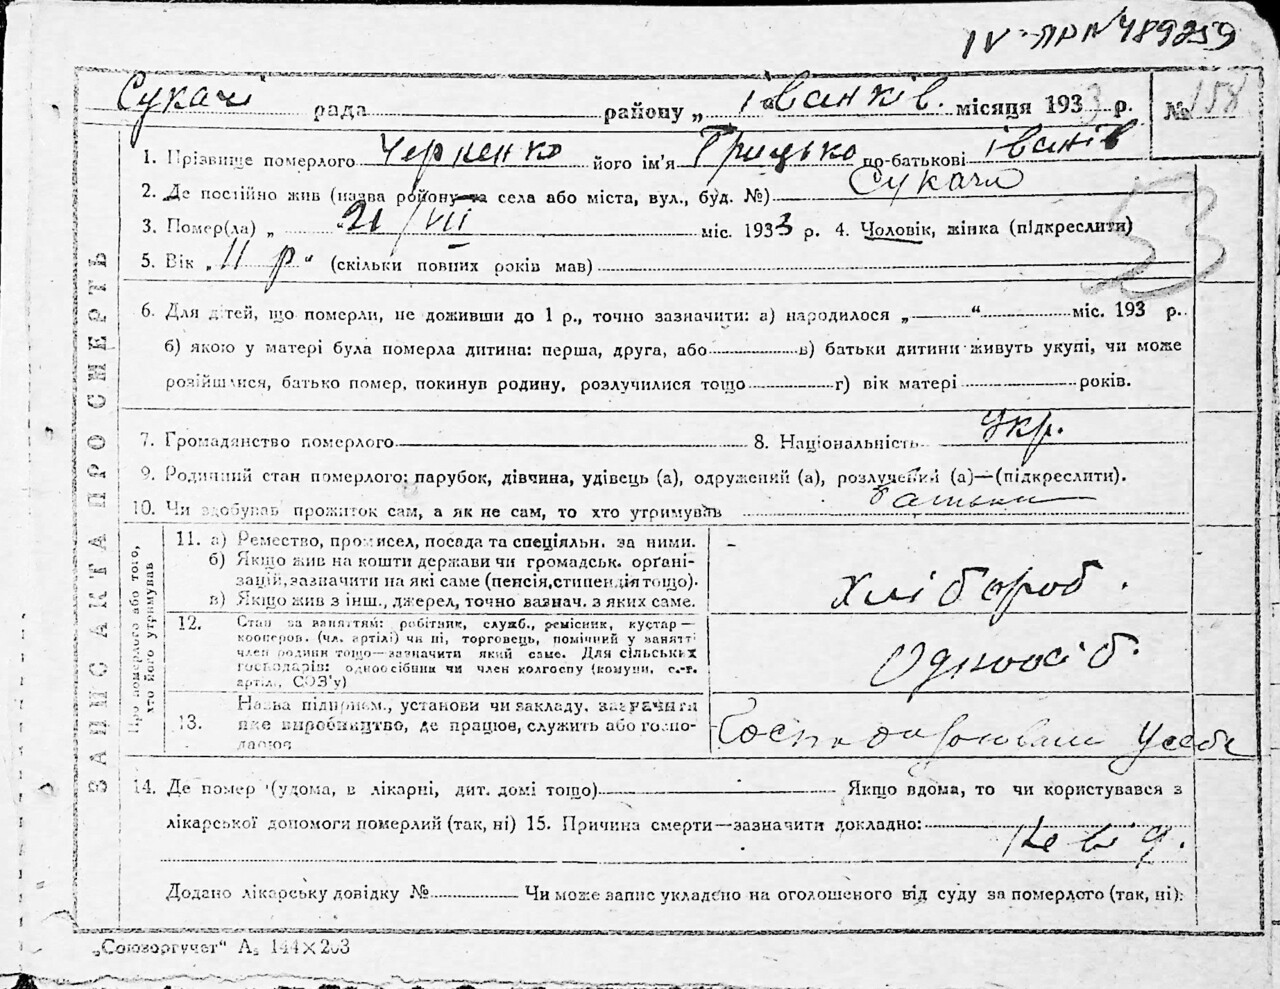 IV-ПРN 489259
Сукачі рада району „ Іванків. місяця 1933 р. № 158
1. Прізвище померлого Черненко його ім'я Грицько по-батькові Іванів
2. Де постійно жив (назва району та села або міста, вул., буд. №) Сукачі
53
3. Помер(ла) „ 21/VII міс. 1933 р. 4. Чоловік, жінка (підкреслити)
5. Вік „ 11 р " (скільки повних років мав)
6. Для дітей, що померли, не доживши до 1 р., точно зазначити: а) народилося „ “ міс. 193 р.
б) якою у матері була померла дитина: перша, друга, або в) батьки дитини живуть укупі, чи може
розійшлися, батько помер, покинув родину, розлучилися тощо г) вік матері років.
7. Громадянство померлого 8. Національність Укр.
9. Родинний стан померлого: парубок, дівчина, удівець (а), одружений (а), розлучений (а)—(підкреслити).
10. Чи здобував прожиток сам, а як не сам, то хто утримував батьки
ЗАПИС АКТА ПРО СМЕРТЬ
Про померлого або того, хто його утримував
11. а) Ремество, промисел, посада та спеціяльн. за ними. -
б) Якщо жив на кошти держави чи громадськ. орґані-
зацій, зазначити на які саме (пенсія, стипендія тощо).
в) Якщо жив з інш., джерел, точно вазнач. з яких саме. хлібороб.
12. Стан за заняттям: робітник, служб., ремісник, кустар—
кооперов. (чл. артілі) чи ні, торговець, помічний у занятті
член родини тощо—зазначити який саме. Для сільських
господарів: одноосібник чи член колгоспу (комуни, с.-г.
артілі, СОЗ'у) Одноосіб.
13. Назва підприєм., установи чи закладу, зазначити
яке виробництво, де працює, служить або госпо-
дарює Господарювали у себе
14. Де помер (удома, в лікарні, дит. домі тощо) Якщо вдома, то чи користувався з
лікарської допомоги померлий (так, ні) 15. Причина смерти—зазначити докладно: Невід.
Додано лікарську довідку № Чи може запис укладено на оголошеного від суду за померлого (так, ні):
„Союзоргучет“ А₅ 144×203